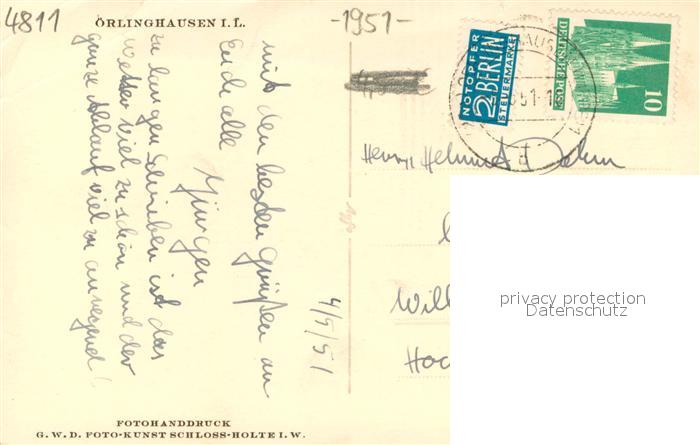 4811
ÖRLINGHAUSEN I. L.
-1951-
NOTOPFER
2 BERLIN
STEUERMARKE
DEUTSCHE POST
10
51-1
4/5/51
mit den besten Grüßen an
Euch alle
Jürgen
zu langen Schreiben ist das
Wetter viel zu schön und der
ganze viel zu anregend!
Herrn Helmut Dehn
Will
Hoc
privacy protection
Datenschutz
FOTOHANDDRUCK
G. W. D. FOTO-KUNST SCHLOSS-HOLTE I. W.